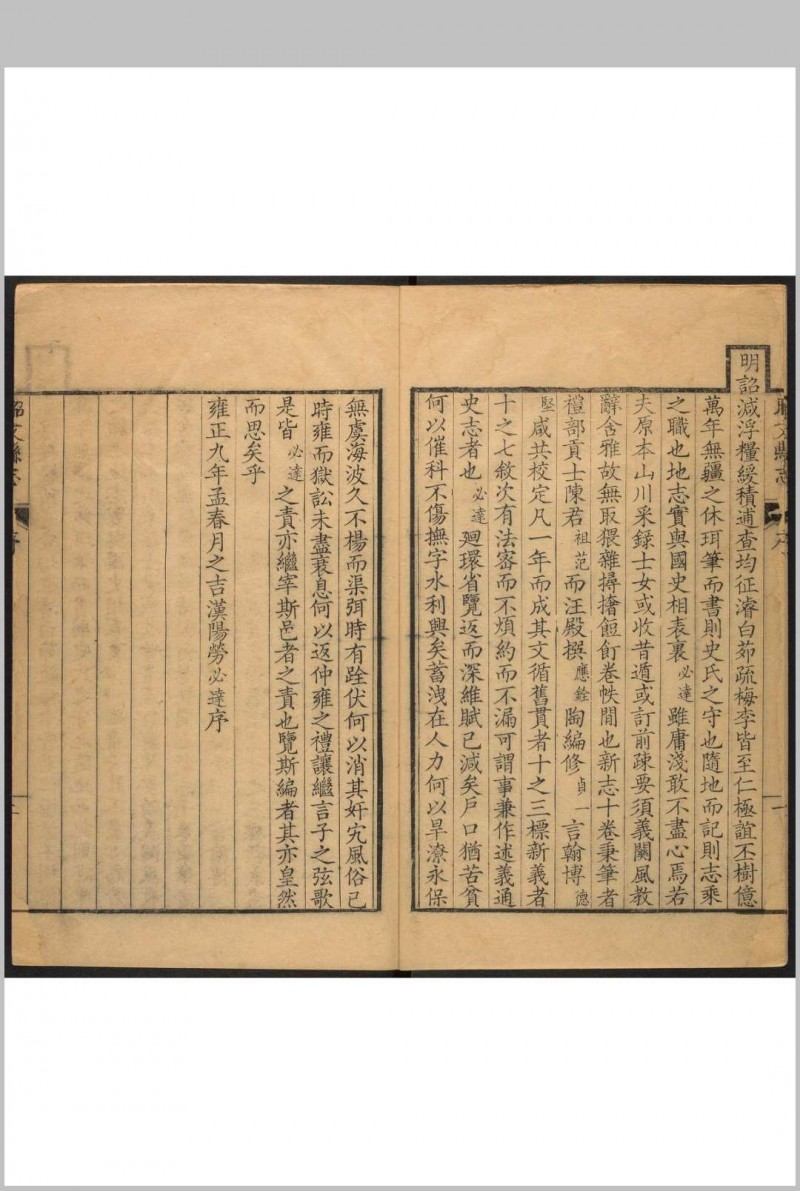 明詔減浮糧緩積逋查均征濬白茆疏梅李皆至仁極誼丕樹億
萬年無疆之休珥筆而書則史氏之守也隨地而記則志乘
之職也地志實與國史相表裏必達雖庸淺敢不盡心焉若
夫原本山川采録士女或收昔遁或訂前疎要須義關風教
辭舍雅故無取猥雜撏撦飣餖卷帙間也新志十卷秉筆者
禮部貢士陳君祖范而汪殿撰應銓陶編修貞一言翰博德
堅咸共校定凡一年而成其文循舊貫者十之三標新義者
十之七敘次有法審而不煩約而不漏可謂事兼作述義通
史志者也必達廻環省覽返而深維賦已減矣戶口猶苦貧
何以催科不傷撫字水利興矣蓄洩在人力何以旱潦永保
無虞海波久不楊而渠弭時有跧伏何以消其奸宄風俗已
時雍而獄訟未盡衰息何以返仲雍之禮讓繼言子之弦歌
是皆必達之責亦繼宰斯邑者之責也覽斯編者其亦皇然
而思矣乎
雍正九年孟春月之吉漢陽勞必達序
昭文縣志
序